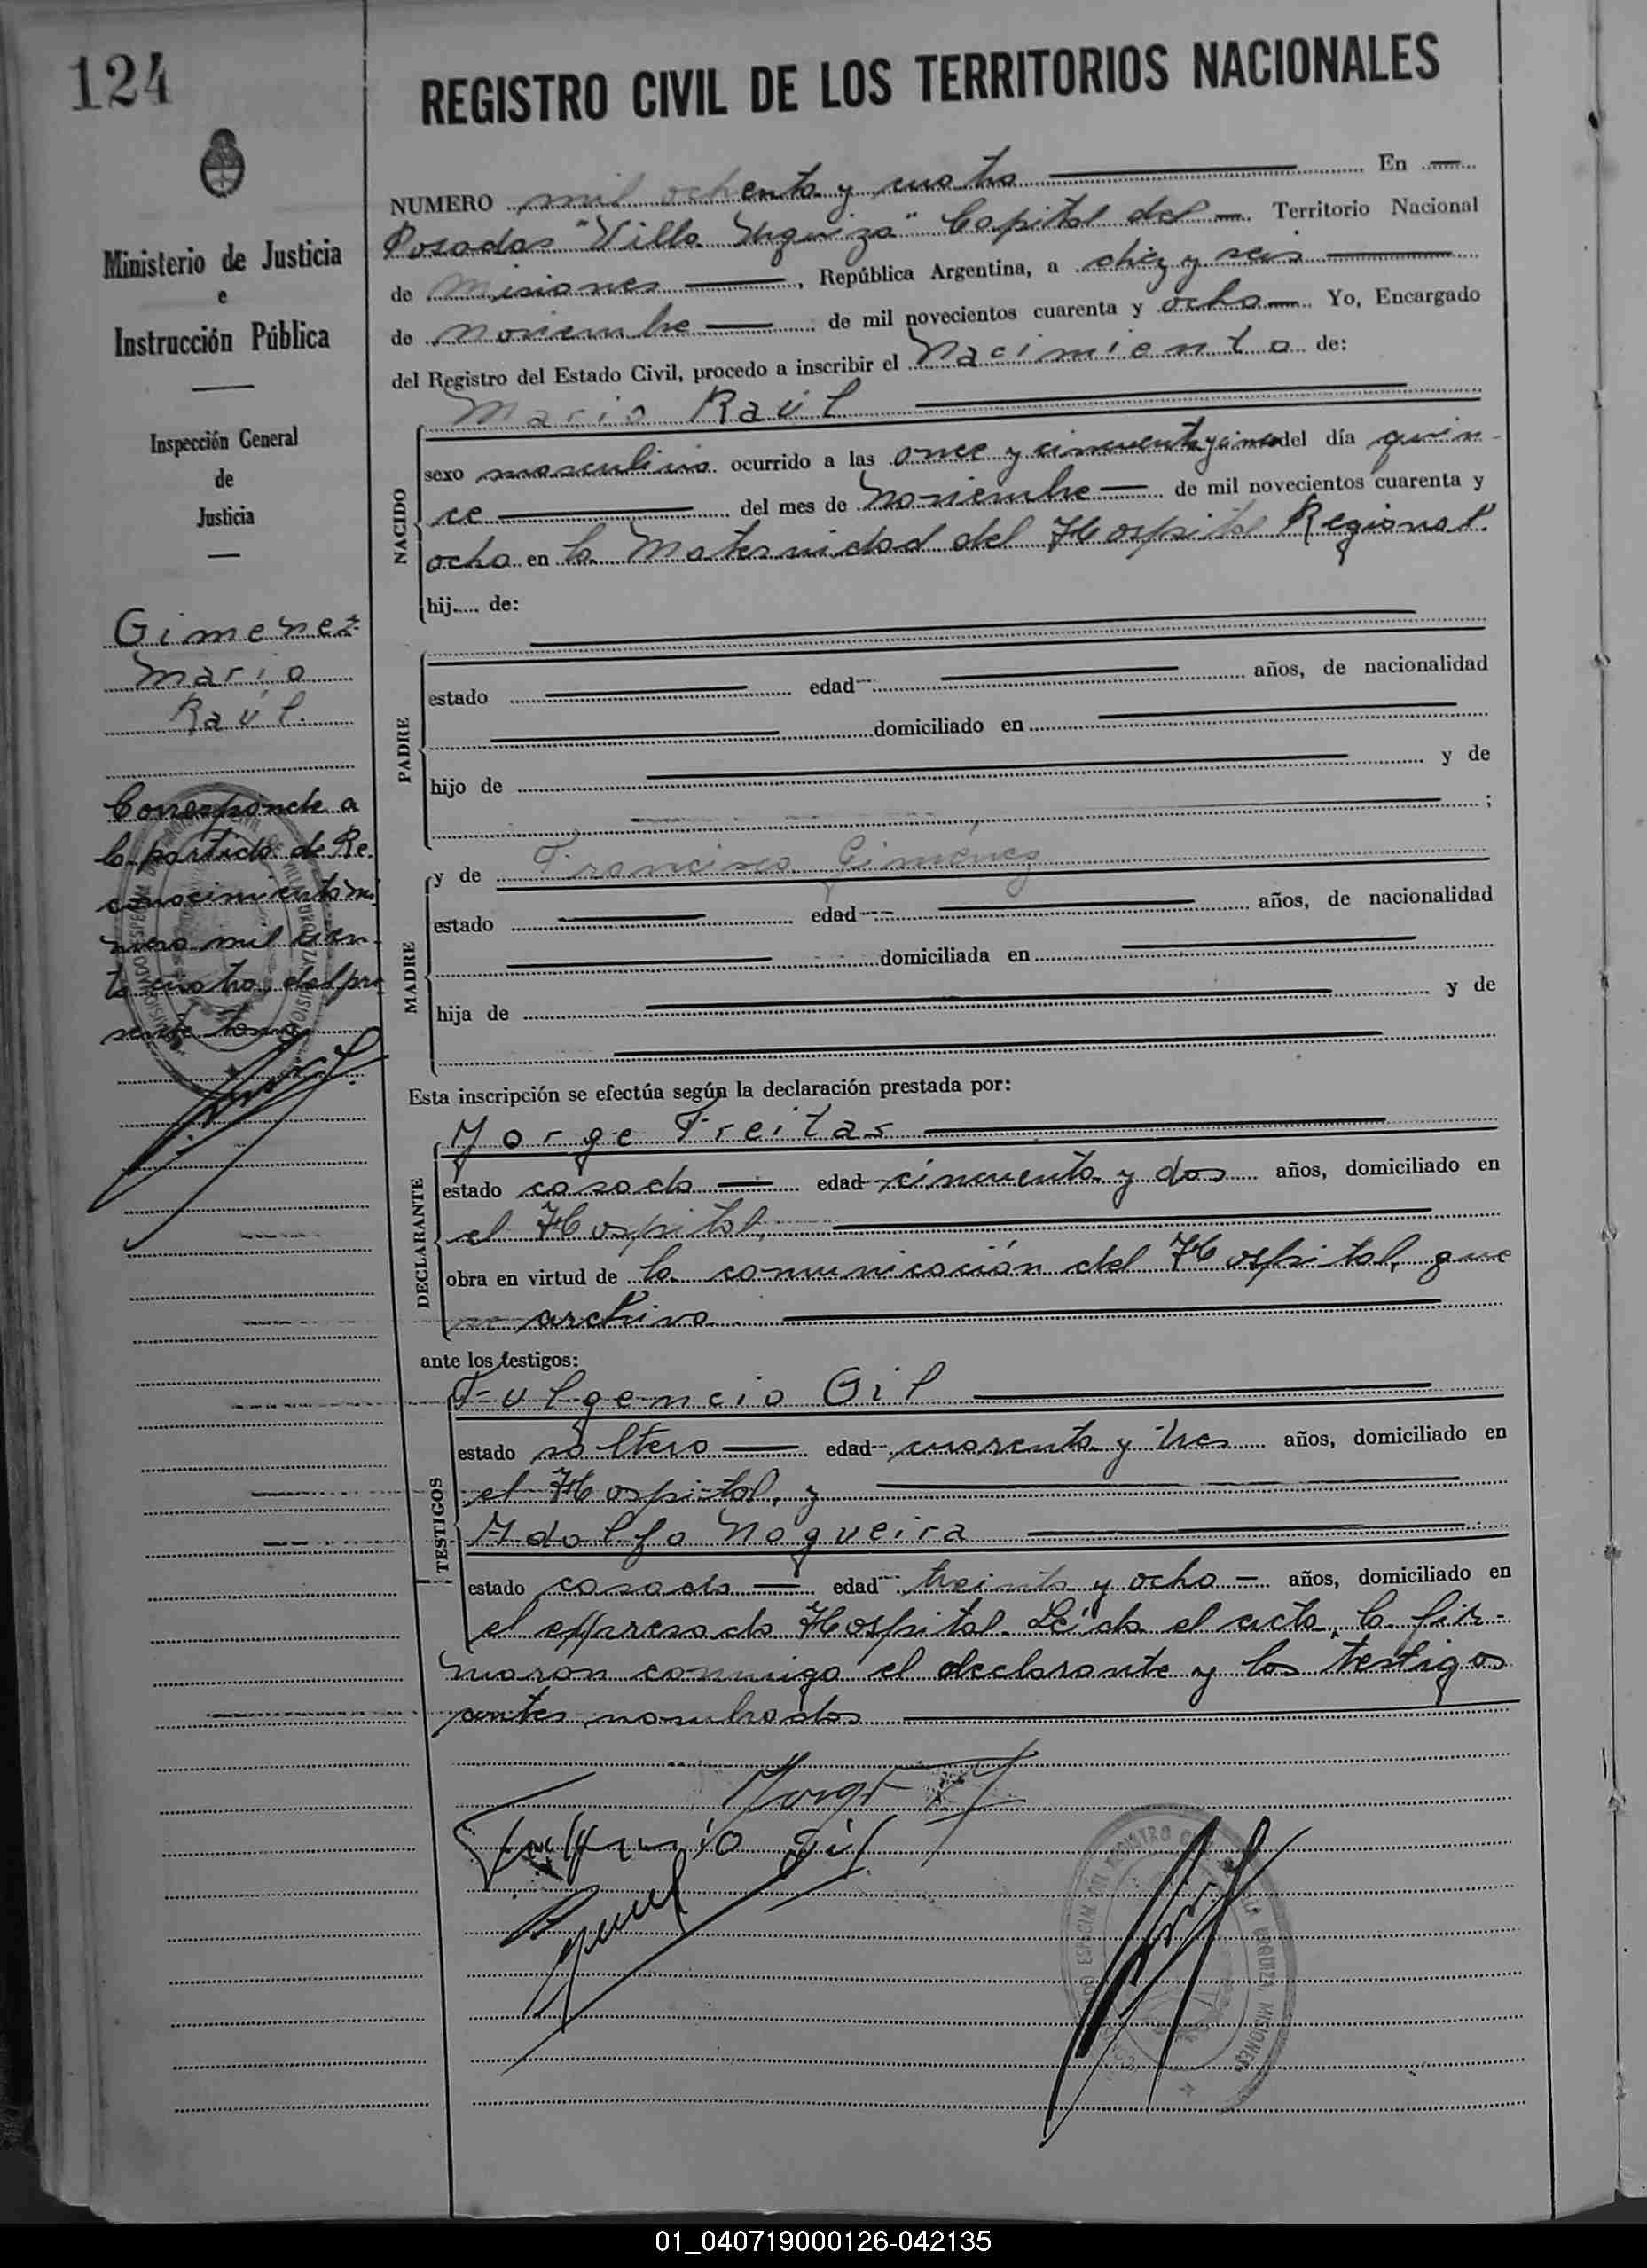 124
Ministerio de Justicia
e
Instrucción Pública
Inspección General
de
Justicia
Gimenez
Mario
Raúl.
Corresponde a
la partida de Re-
conocimiento nú
mero mil cien-
to cuatro, del pre
sente tomo
REGISTRO CIVIL DE LOS TERRITORIOS NACIONALES
NUMERO mil ochenta y cuatro En
Posadas "Villa Urquiza" Capital del Territorio Nacional
de Misiones, República Argentina, a diez y seis
de Noviembre de mil novecientos cuarenta y ocho Yo, Encargado
del Registro del Estado Civil, procedo a inscribir el Nacimiento de:
Mario Raúl
NACIDO
sexo masculino ocurrido a las once y cincuenta y cinco del día quin-
ce del mes de Noviembre de mil novecientos cuarenta y
ocho en la Maternidad del Hospital Regional.
hij..... de:
PADRE
estado edad años, de nacionalidad
domiciliado en
hijo de y de
;
MADRE
y de Francisca Giménez
estado edad años, de nacionalidad
domiciliada en
hija de y de
Esta inscripción se efectúa según la declaración prestada por:
DECLARANTE
Jorge Freitas
estado casado edad cincuenta y dos años, domiciliado en
el Hospital,
obra en virtud de la comunicación del Hospital, que
se archiva
ante los testigos:
TESTIGOS
Fulgencio Gil
estado soltero edad cuarenta y tres años, domiciliado en
el Hospital, y
Adolfo Nogueira
estado casado edad treinta y ocho años, domiciliado en
el expresado Hospital. Leída el acta, la fir-
maron conmigo el declarante y los testigos
antes nombrados
Jorge
Fulgencio Gil
VILLA URQUIZA, MISIONES
01_040719000126-042135